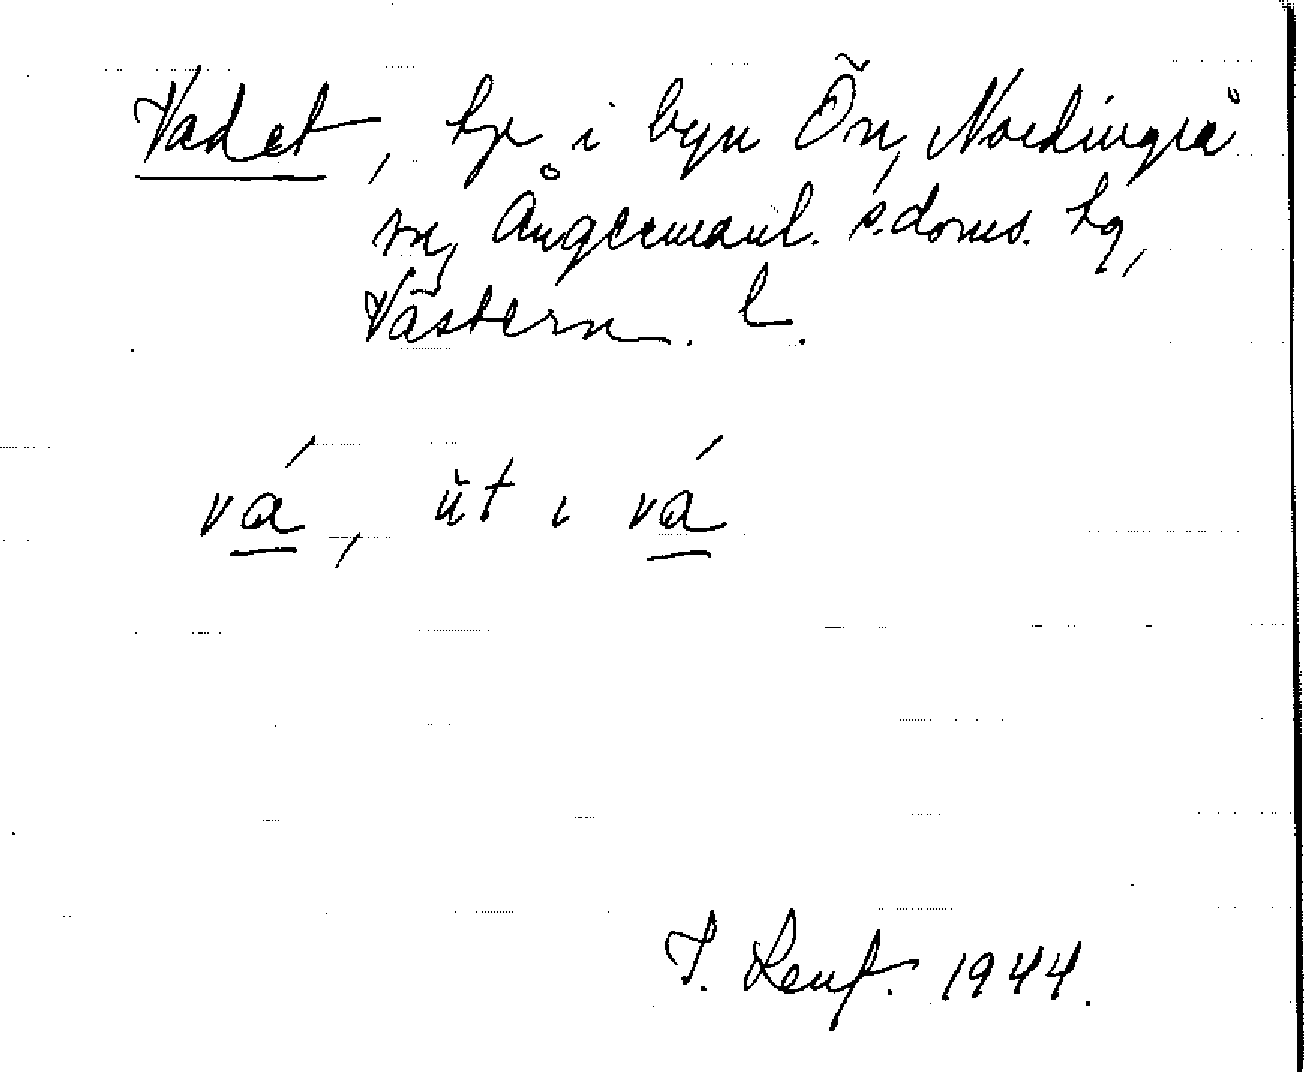 Vadet, hp i byn Ön, Nordingrå
sn, Ångermanl. s. doms. hg,
Västern. l.
vá, út ɩ vá
T. Lenf. 1944.